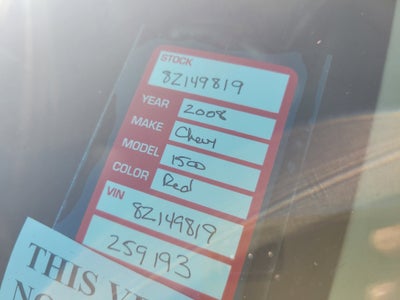 STOCK
8Z149819
YEAR 2008
MAKE Chevy
MODEL 1500
COLOR Red
VIN
8Z149819
259193
THIS